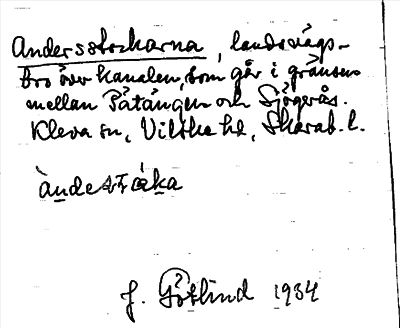 Andersstockarna, landsvägs-
bro över kanalen, som går i gränsen
mellan Påtängen och Sjögerås.
Kleva sn, Vilske hd, Skarab. l.
J. Götlind 1934